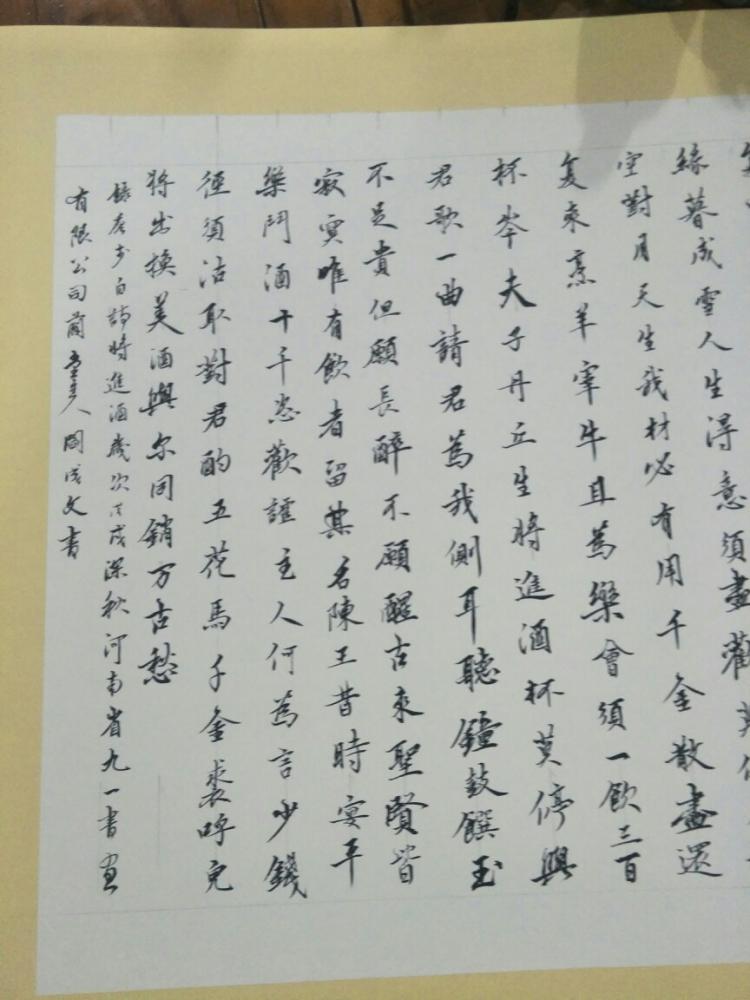 絲暮成雪人生得意須盡歡莫
空對月天生我材必有用千金散盡還
复來烹羊宰牛且為樂會須一飲三百
杯岑夫子丹丘生將進酒杯莫停與
君歌一曲請君為我側耳聽鐘鼓饌玉
不足貴但願長醉不願醒古來聖賢皆
寂寞唯有飲者留其名陳王昔時宴平
樂鬥酒十千恣歡謔主人何為言少錢
徑須沽取對君酌五花馬千金裘呼兒
將出換美酒與尔同銷万古愁
錄唐李白詩將進酒歲次戊戌深秋河南省九一書画
有限公司蘭堂主人成文書